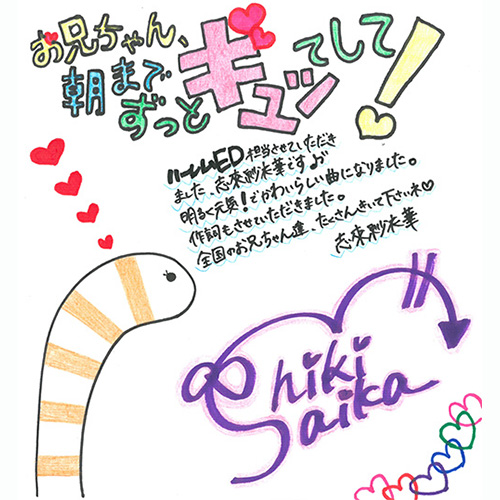 お兄ちゃん、
朝まで
ずっと
ギュッてして!
ハーレムED担当させていただき
ました、志來紗末華です♪
明るく元気!でかわいらしい曲になりました。
作詞もさせていただきました。
全国のお兄ちゃん達、たくさんきいて下さいネ♡
Shiki
Saika